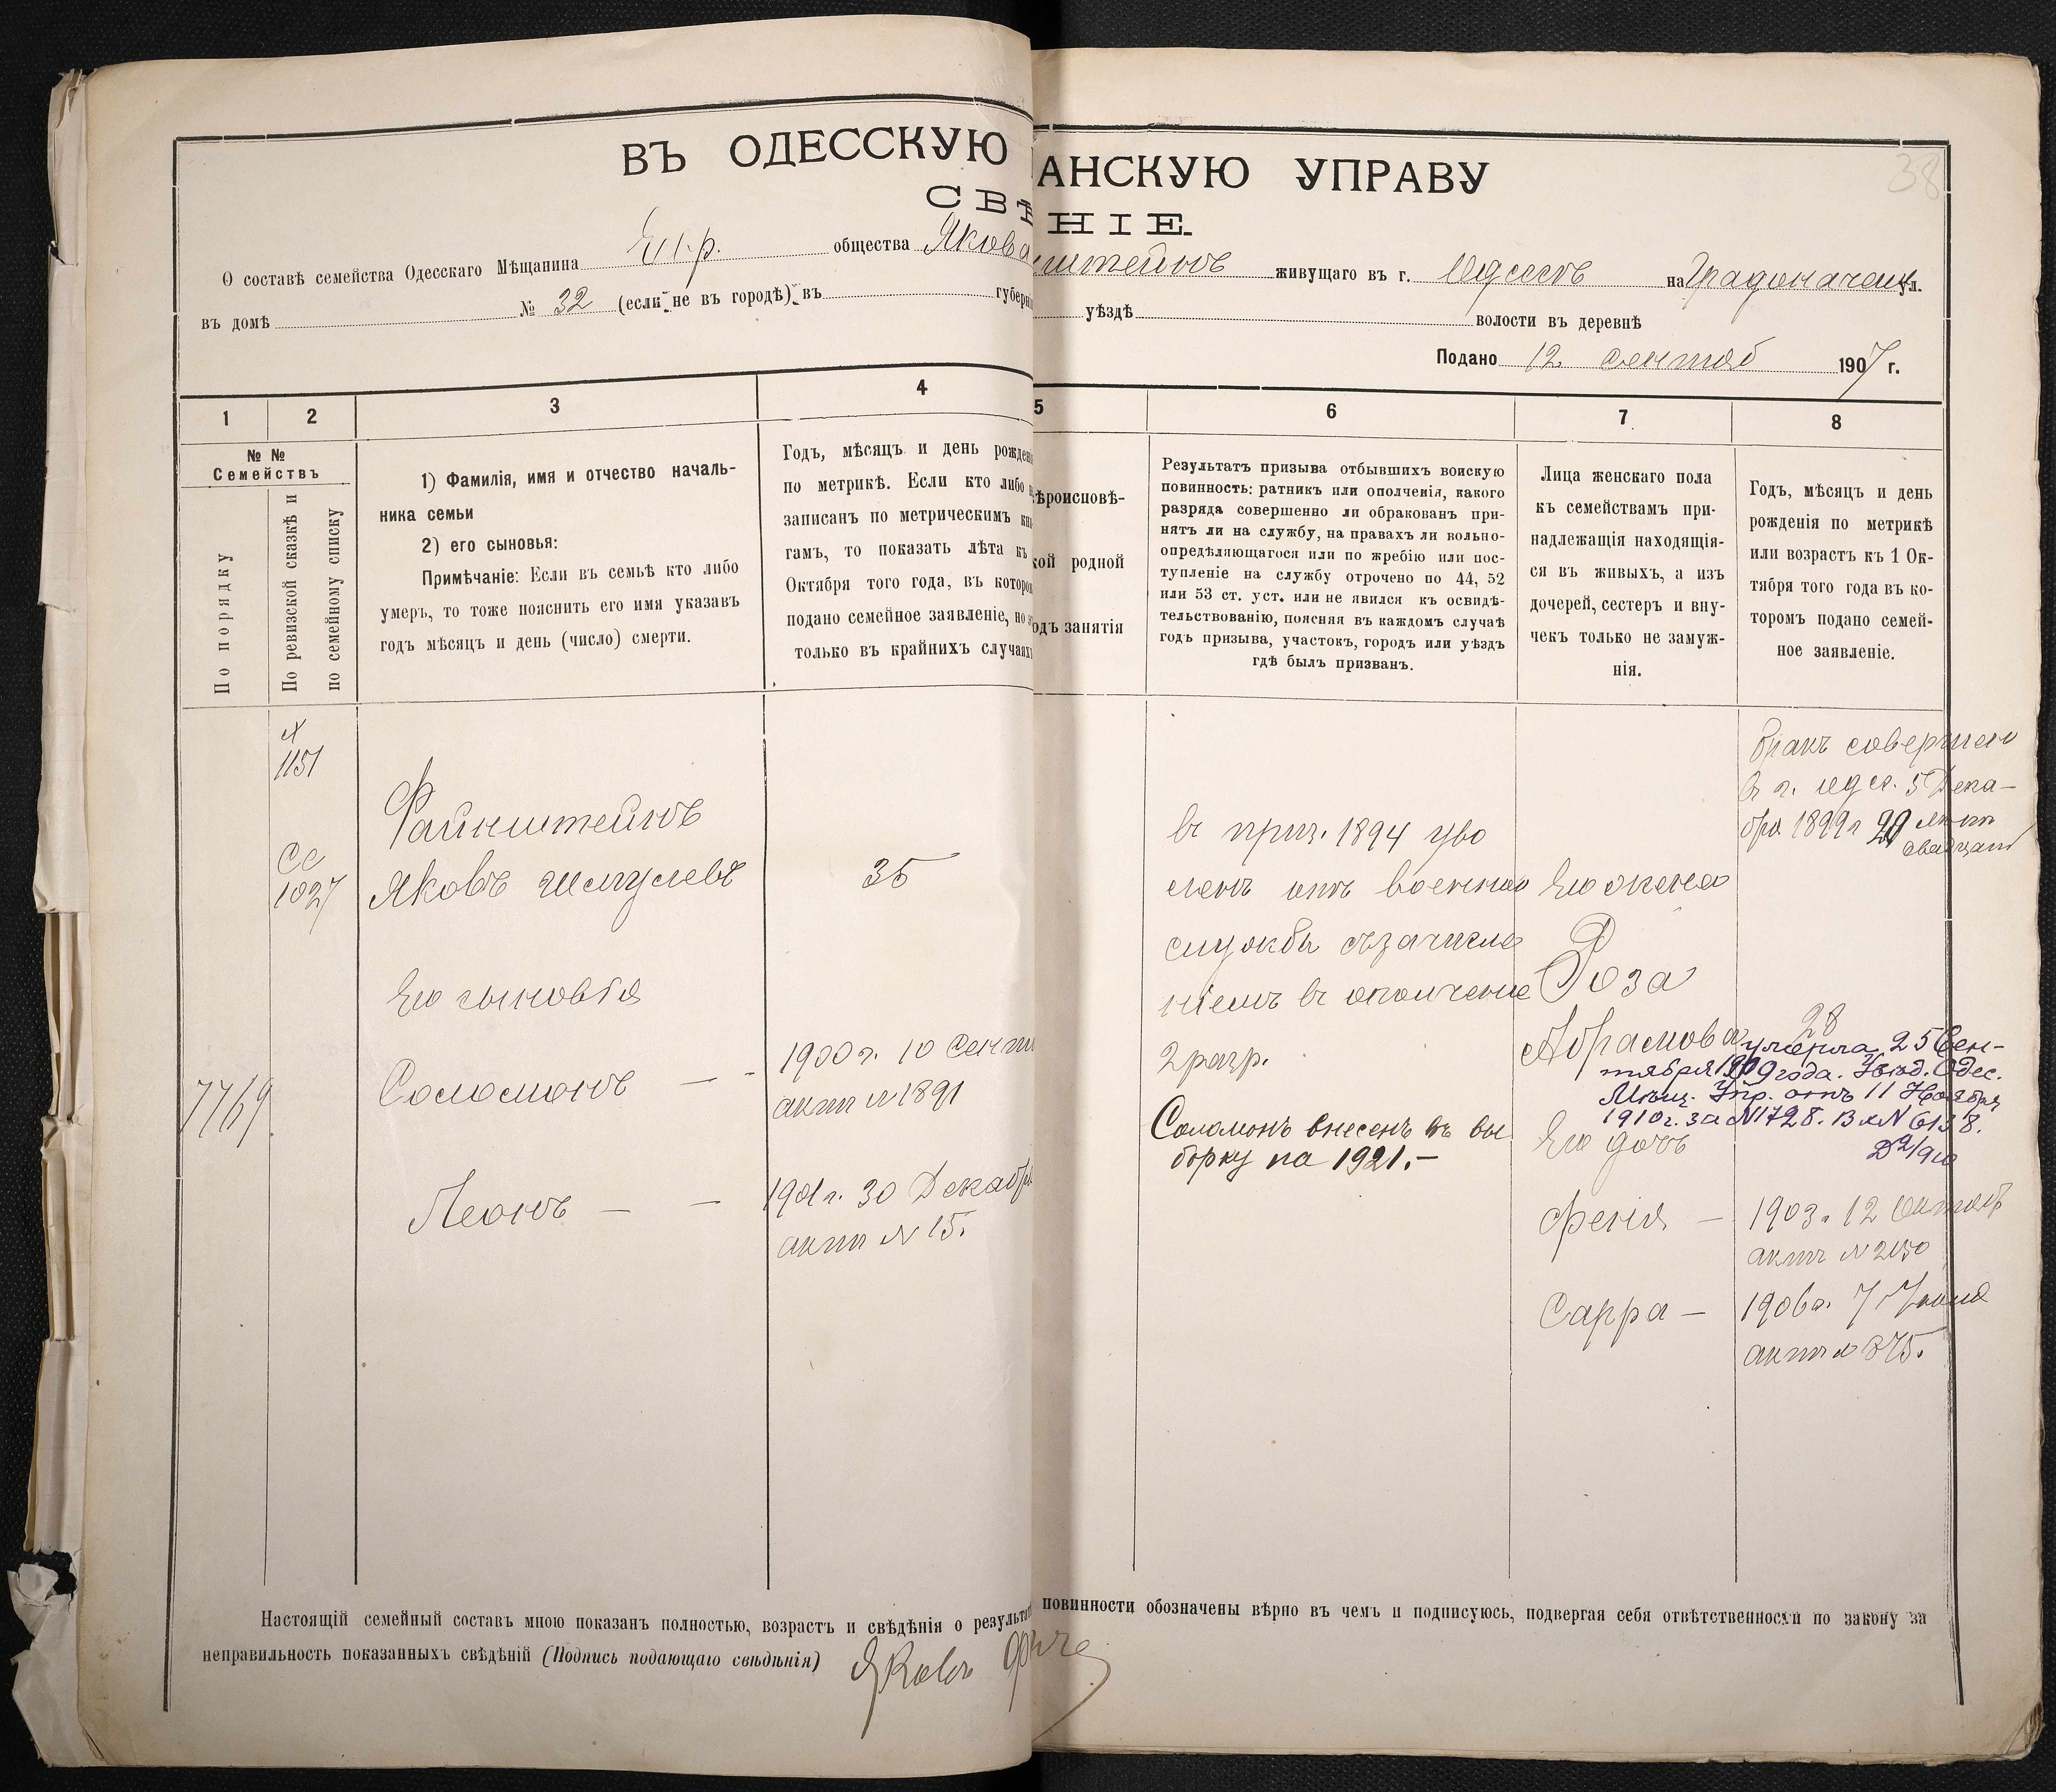 38
ВЪ ОДЕССКУЮ АНСКУЮ УПРАВУ
СВѢ НІЕ.
О составѣ семейства Одесскаго Мѣщанина Евр. общества Якова штейнъ живущаго въ г. Одессѣ на Градоначал ул.
въ домѣ № 32 (если не въ городѣ) въ губерн уѣздѣ волости въ деревнѣ
Подано 12 сентяб 1907 г.
1 2 3 4 5 6 7 8
№ №
Семействъ
По порядку
По ревизской сказкѣ и
по семейному списку
1) Фамилія, имя и отчество началь-
ника семьи
2) его сыновья:
Примѣчаніе: Если въ семьѣ кто либо
умеръ, то тоже пояснить его имя указавъ
годъ мѣсяцъ и день (число) смерти.
Годъ, мѣсяцъ и день рожден
по метрикѣ. Если кто либо
записанъ по метрическимъ кни
гамъ, то показать лѣта къ
Октября того года, въ которо
подано семейное заявленіе, но
только въ крайнихъ случаях
ѣроисповѣ-
кой родной
одъ занятія
Результатъ призыва отбывшихъ воискую
повинность: ратникъ или ополченія, какого
разряда совершенно ли обракованъ при-
нятъ ли на службу, на правахъ ли вольно-
опредѣляющагося или по жребію или пос-
тупленіе на службу отрочено по 44, 52
или 53 ст. уст. или не явился къ освидѣ-
тельствованію, поясняя въ каждомъ случаѣ
годъ призыва, участокъ, городъ или уѣздъ
гдѣ былъ призванъ.
Лица женскаго пола
къ семействамъ при-
надлежащія находящія-
ся въ живыхъ, а изъ
дочерей, сестеръ и вну-
чекъ только не замуж-
нія.
Годъ, мѣсяцъ и день
рожденія по метрикѣ
или возрастъ къ 1 Ок-
тября того года въ ко-
торомъ подано семей-
ное заявленіе.
1151
СС
1027
7769
Файнштейнъ
Яковъ Шмулевъ
35
Его сыновья
Соломонъ — -
1900 г. 10 Сентя
актъ № 1891
Леонъ — —
1901 г. 30 Декабр
актъ № 15.
въ приз. 1894 уво
ленъ отъ военной
службы съ зачисле
ніемъ въ ополченіе
2 разр.
Соломонъ внесенъ въ вы
борку на 1921.—
Его жена
Роза
Абрамова
28
бракъ совершенъ
въ г. Одес. 5 Дека-
бря 1899 г 20
умерла 25 Сен-
тября 1909 года. Увѣд. Одес.
Мѣщ. Упр. отъ 11 Ноября
1910 г. за № 1728. Вх № 6138.
Его дочь
Феня —
1903 г. 12 Октяб
актъ № 2150
Сарра —
1906 г. 7 Іюня
актъ № 875.
Настоящій семейный составъ мною показанъ полностью, возрастъ и свѣдѣнія о результат повинности обозначены вѣрно въ чемъ и подписуюсь, подвергая себя отвѣтственности по закону за
неправильность показанныхъ свѣдѣній (Подпись подающаго свѣдѣнія) Яковъ